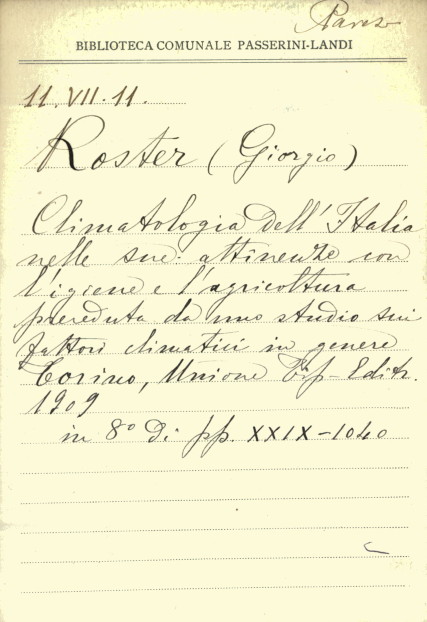 BIBLIOTECA COMUNALE PASSERINI-LANDI
11.VII.11.
Roster (Giorgio)
Climatologia dell'Italia
nelle sue attinenze con
l'igiene e l'agricoltura
preceduta da uno studio sui
fattori climatici in genere
Torino, Unione Tip. Editr.
1909
in 8° di pp. XXIX-1040